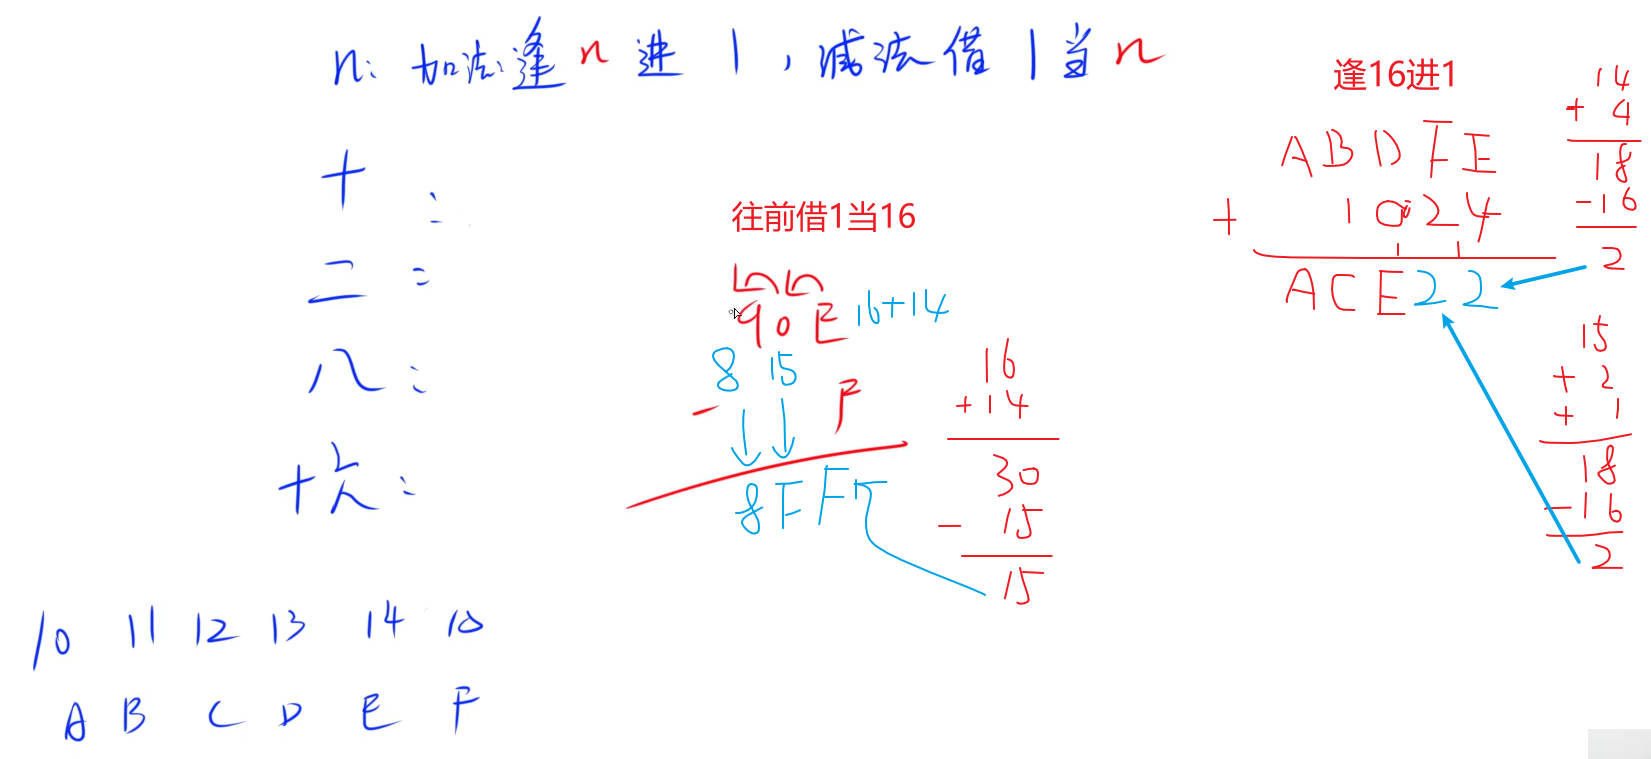 n: 加法:逢n进1,减法借1当n
十:
二:
八:
十六:
10 11 12 13 14 15
A B C D E F
往前借1当16
90E 16+14
8 15
- F
8FF
16
+14
30
- 15
15
逢16进1
ABDFE
+ 10024
1 1
ACE22
14
+ 4
18
-16
2
15
+ 2
+ 1
18
-16
2